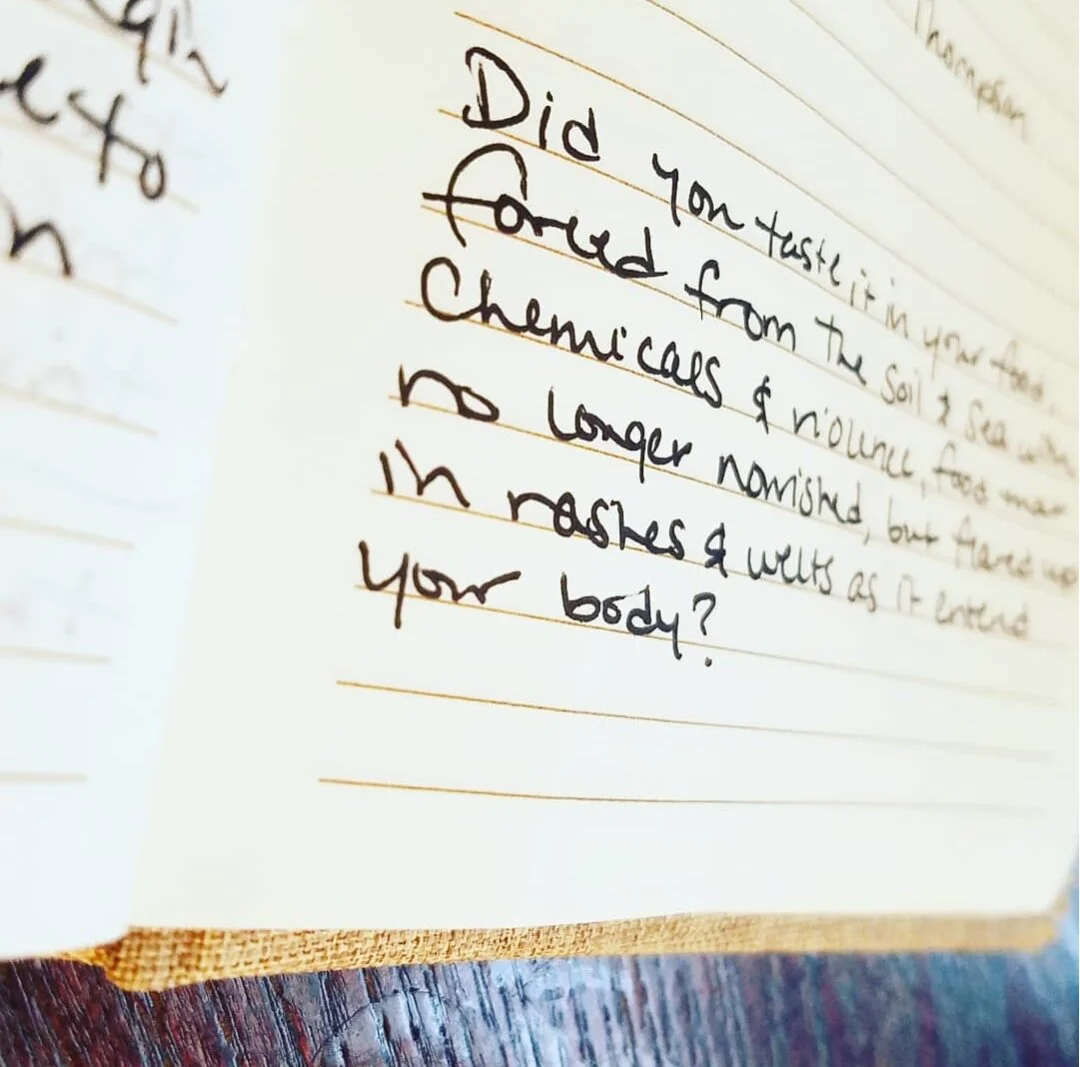 egin
e to
n
Thompson
Did you taste it in your food,
forced from the soil & sea with
Chemicals & violence, food that
no longer nourished, but flared up
in rashes & welts as it entered
your body?